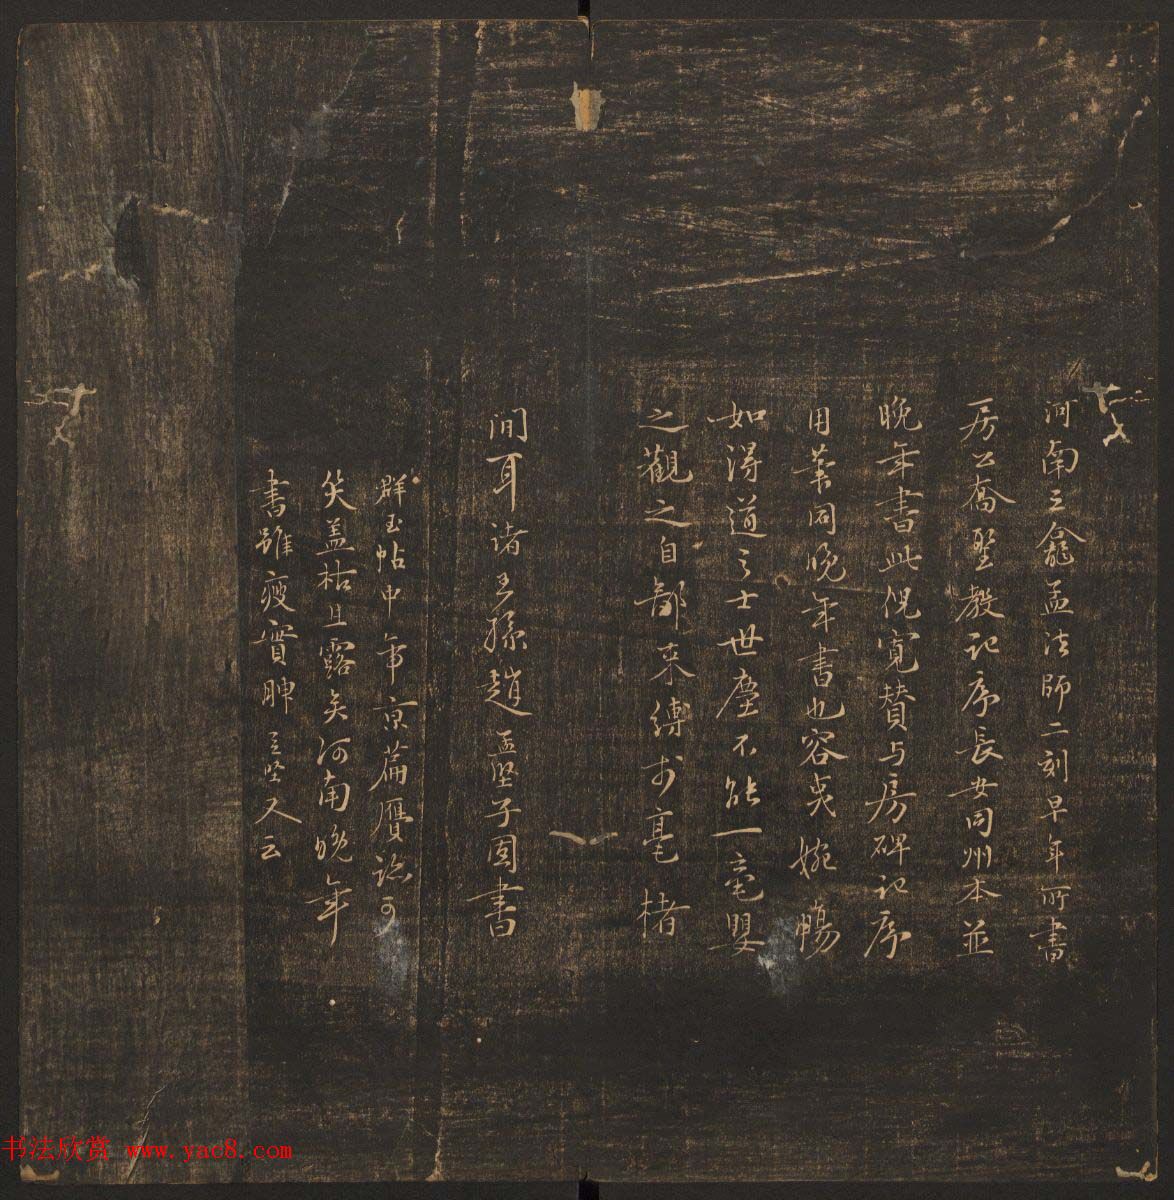 河南三龕孟法師二刻早年所書
房公喬聖教記序長安同州本並
晚年書此倪寬贊与房碑記序
用筆同晚年書也容夷婉暢
如得道之士世塵不能一毫嬰
之觀之自鄙束縛於毫楮
間耳诸王孫趙孟堅子固書
群玉帖中帝京篇贋跡可
笑盖枯且露矣河南晚年
書雖瘦實腴孟堅又云
书法欣赏 www.yac8.com